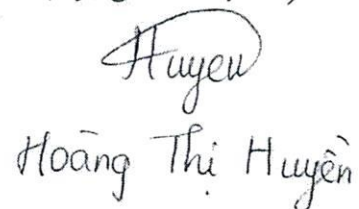 Huyen
Hoàng Thị Huyền